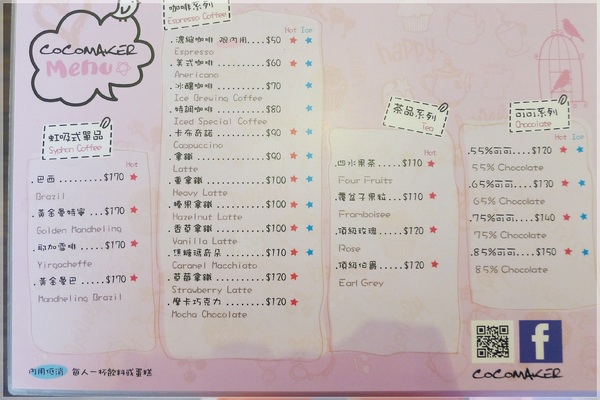 COCOMAKER
Menu
咖啡系列
Espresso Coffee
Hot Ice
.濃縮咖啡 限內用....$50
Espresso
.美式咖啡............$60
Americano
.冰釀咖啡............$70
Ice Brewing Coffee
.特調咖啡............$80
Iced Special Coffee
.卡布奇諾............$90
Cappuccino
.拿鐵................$90
Latte
.重拿鐵..............$100
Heavy Latte
.榛果拿鐵............$100
Hazelnut Latte
.香草拿鐵............$100
Vanilla Latte
.焦糖瑪奇朵..........$110
Caramel Macchiato
.草莓拿鐵............$120
Strawberry Latte
.摩卡巧克力..........$120
Mocha Chocolate
虹吸式單品
Syphon Coffee
Hot
.巴西..........$170
Brazil
.黃金曼特寧...$170
Golden Mandheling
.耶加雪啡.....$170
Yirgacheffe
.黃金曼巴.....$170
Mandheling Brazil
茶品系列
Tea
Hot
.四水果茶.....$110
Four Fruits
.覆盆子果粒...$110
Framboisee
.頂級玫瑰.....$120
Rose
.頂級伯爵.....$120
Earl Grey
可可系列
Chocolate
Hot Ice
.55%可可...$120
55% Chocolate
.65%可可...$130
65% Chocolate
.75%可可...$140
75% Chocolate
.85%可可...$150
85% Chocolate
happy
內用低消 每人一杯飲料或蛋糕
f
COCOMAKER